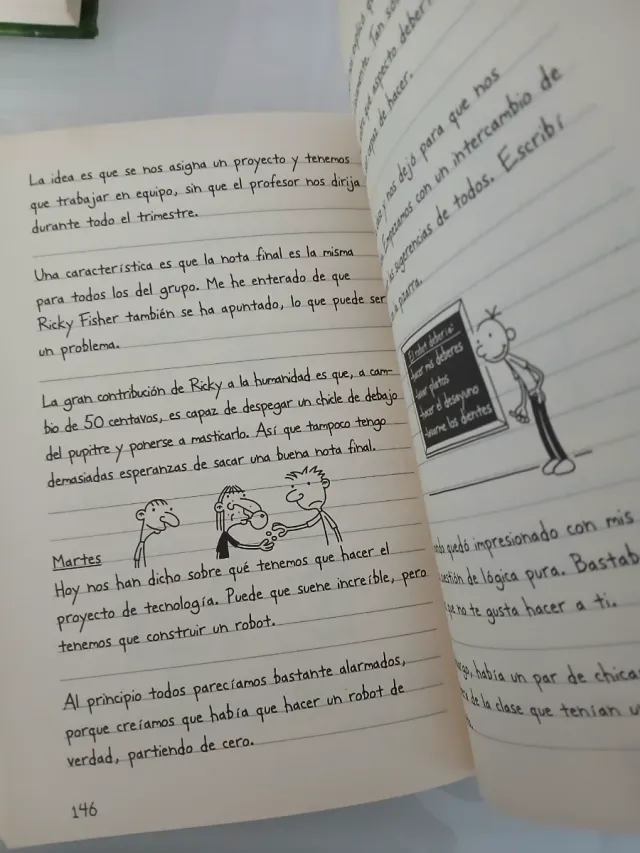 La idea es que se nos asigna un proyecto y tenemos
que trabajar en equipo, sin que el profesor nos dirija
durante todo el trimestre.
Una característica es que la nota final es la misma
para todos los del grupo. Me he enterado de que
Ricky Fisher también se ha apuntado, lo que puede ser
un problema.
La gran contribución de Ricky a la humanidad es que, a cam-
bio de 50 centavos, es capaz de despegar un chicle de debajo
del pupitre y ponerse a masticarlo. Así que tampoco tengo
demasiadas esperanzas de sacar una buena nota final.
Martes
Hoy nos han dicho sobre qué tenemos que hacer el
proyecto de tecnología. Puede que suene increíble, pero
tenemos que construir un robot.
Al principio todos parecíamos bastante alarmados,
porque creíamos que había que hacer un robot de
verdad, partiendo de cero.
146
explica
Tan
qué aspecto deberí
capaz de hacer.
y nos dejó para que nos
Empezamos con un intercambio de
sugerencias de todos. Escribí
pizarra.
El robot debería:
hacer mis deberes
platos
hacer el desayuno
los dientes
quedó impresionado con mis
cuestión de lógica pura. Bastab
que no te gusta hacer a ti.
había un par de chicas
de la clase que tenían